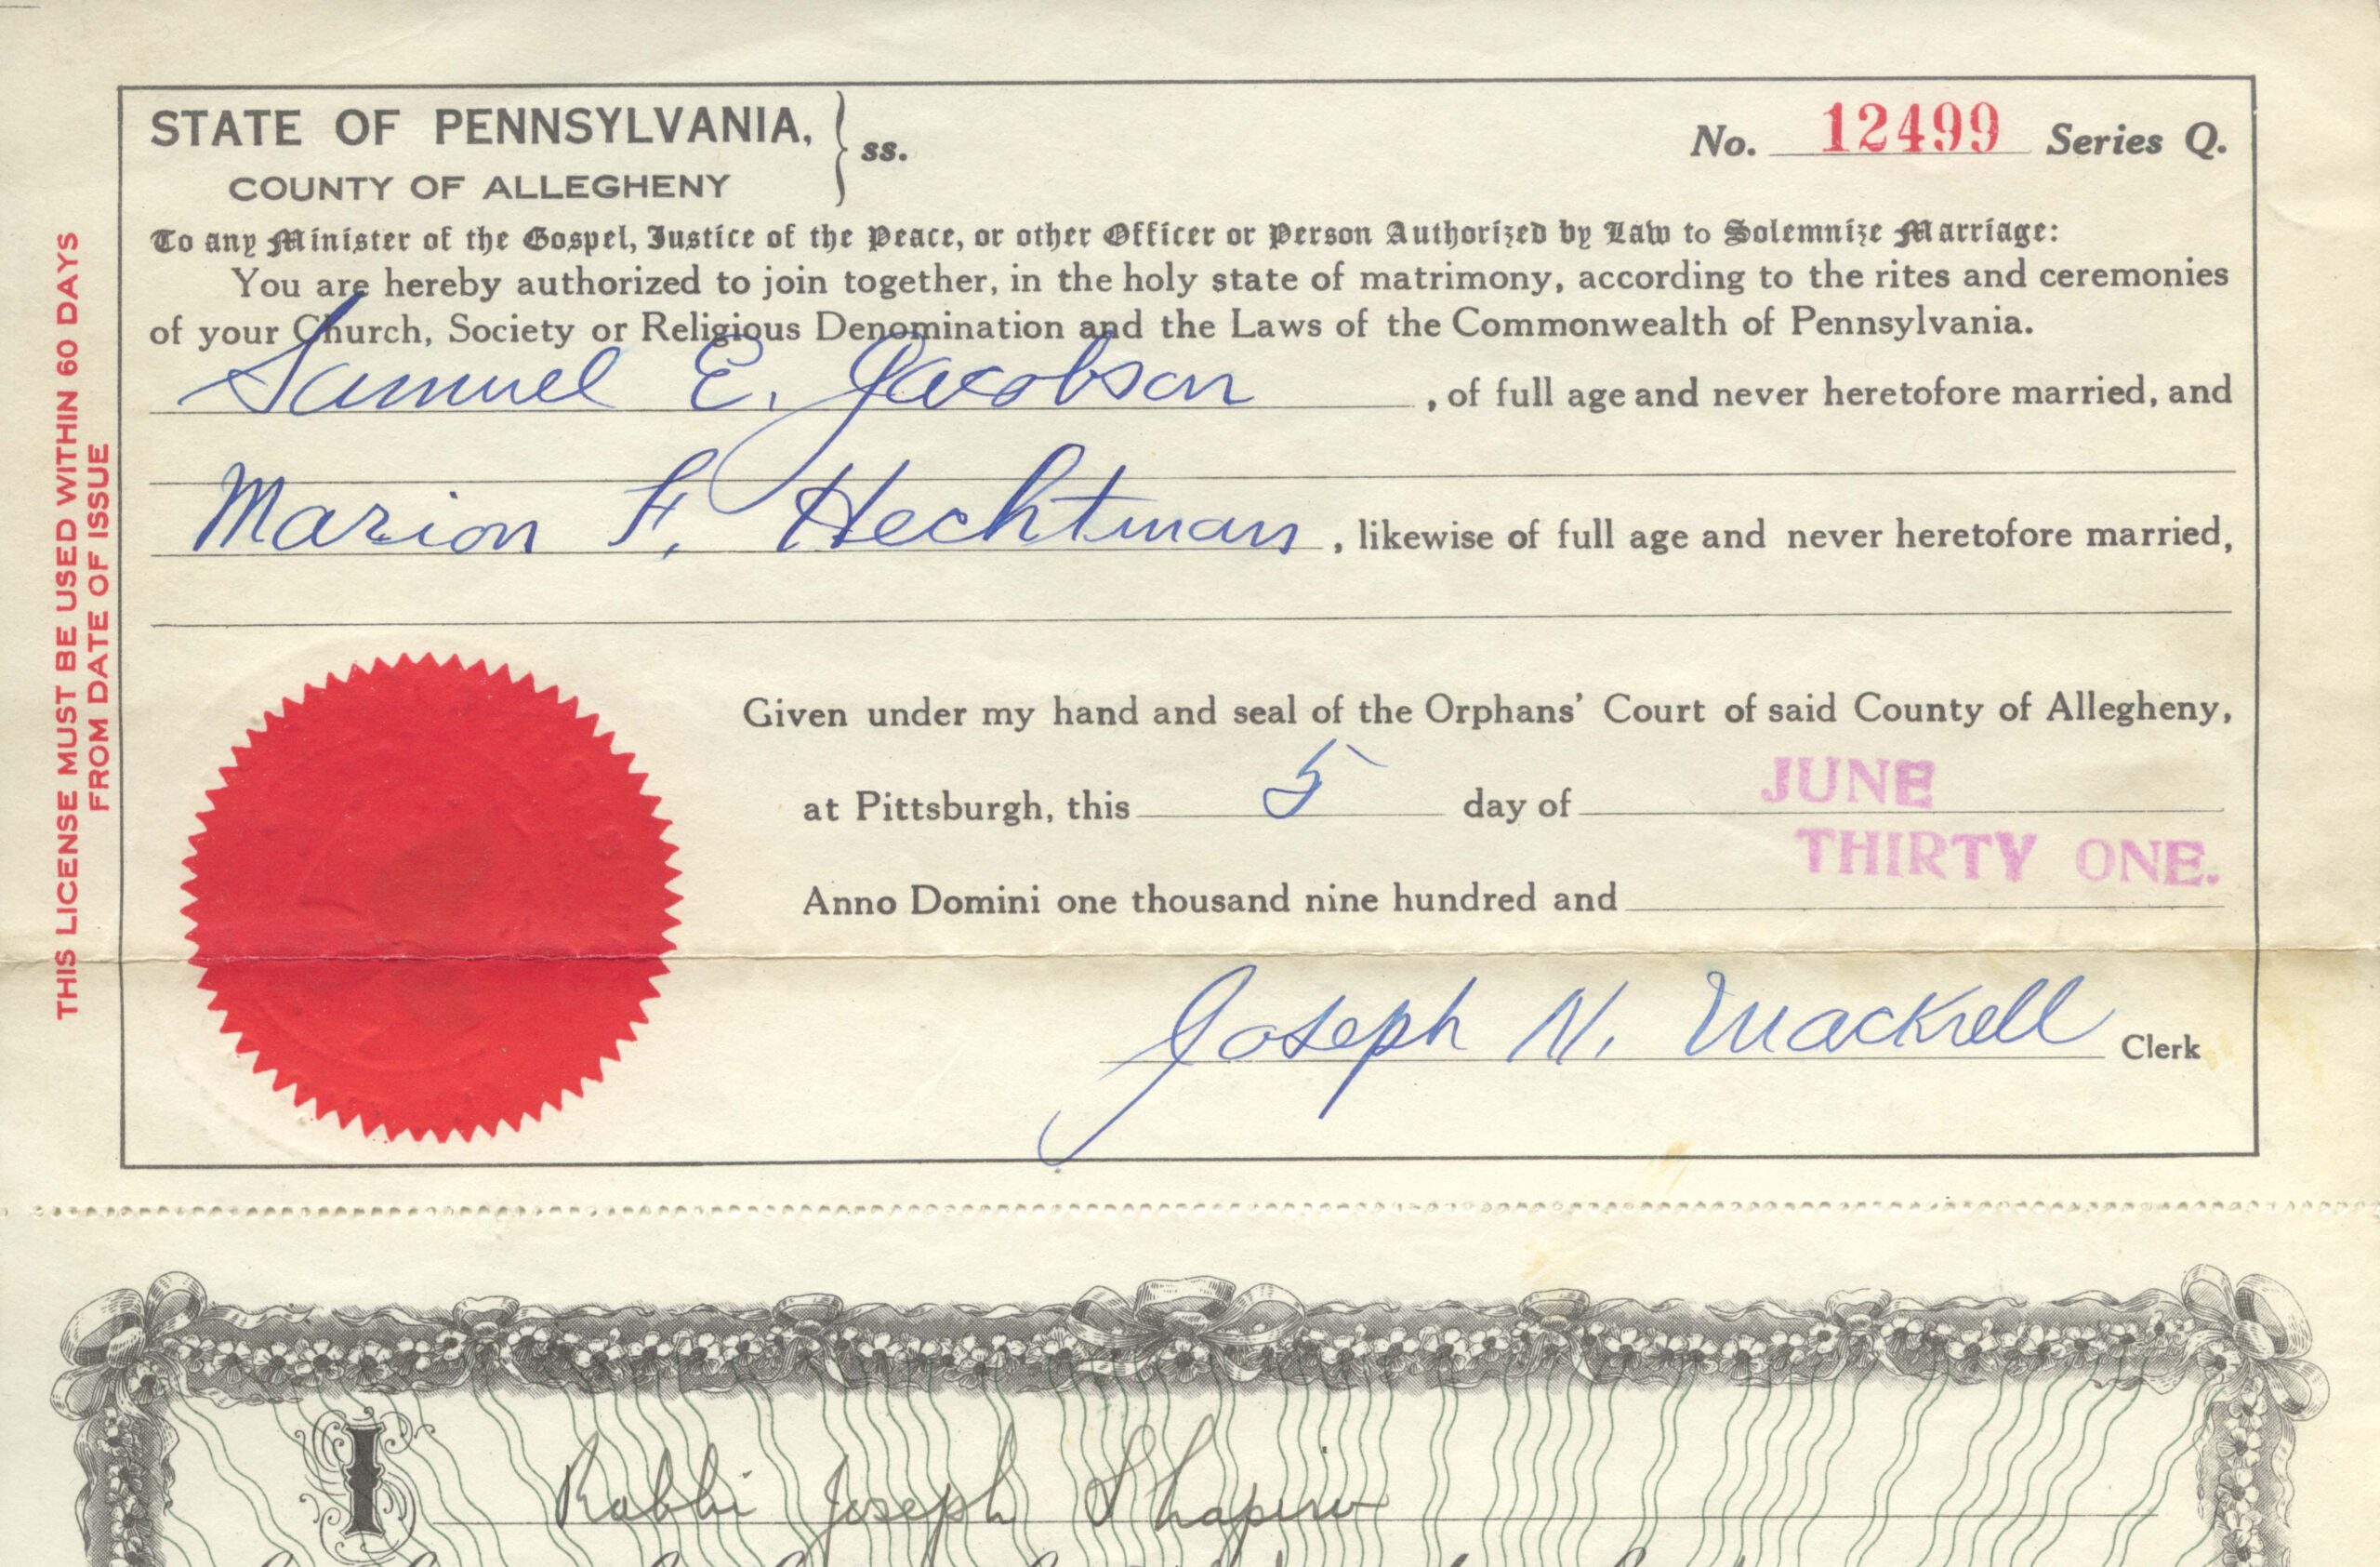 STATE OF PENNSYLVANIA, } ss.
COUNTY OF ALLEGHENY
No. 12499 Series Q.
To any Minister of the Gospel, Justice of the Peace, or other Officer or Person Authorized by Law to Solemnize Marriage:
You are hereby authorized to join together, in the holy state of matrimony, according to the rites and ceremonies
of your Church, Society or Religious Denomination and the Laws of the Commonwealth of Pennsylvania.
Samuel E. Jacobson, of full age and never heretofore married, and
Marion F. Hechtman, likewise of full age and never heretofore married,
Given under my hand and seal of the Orphans' Court of said County of Allegheny,
at Pittsburgh, this 5 day of JUNE
Anno Domini one thousand nine hundred and THIRTY ONE.
Joseph N. Mackrell Clerk
THIS LICENSE MUST BE USED WITHIN 60 DAYS
FROM DATE OF ISSUE
I Rabbi Joseph Shapiro